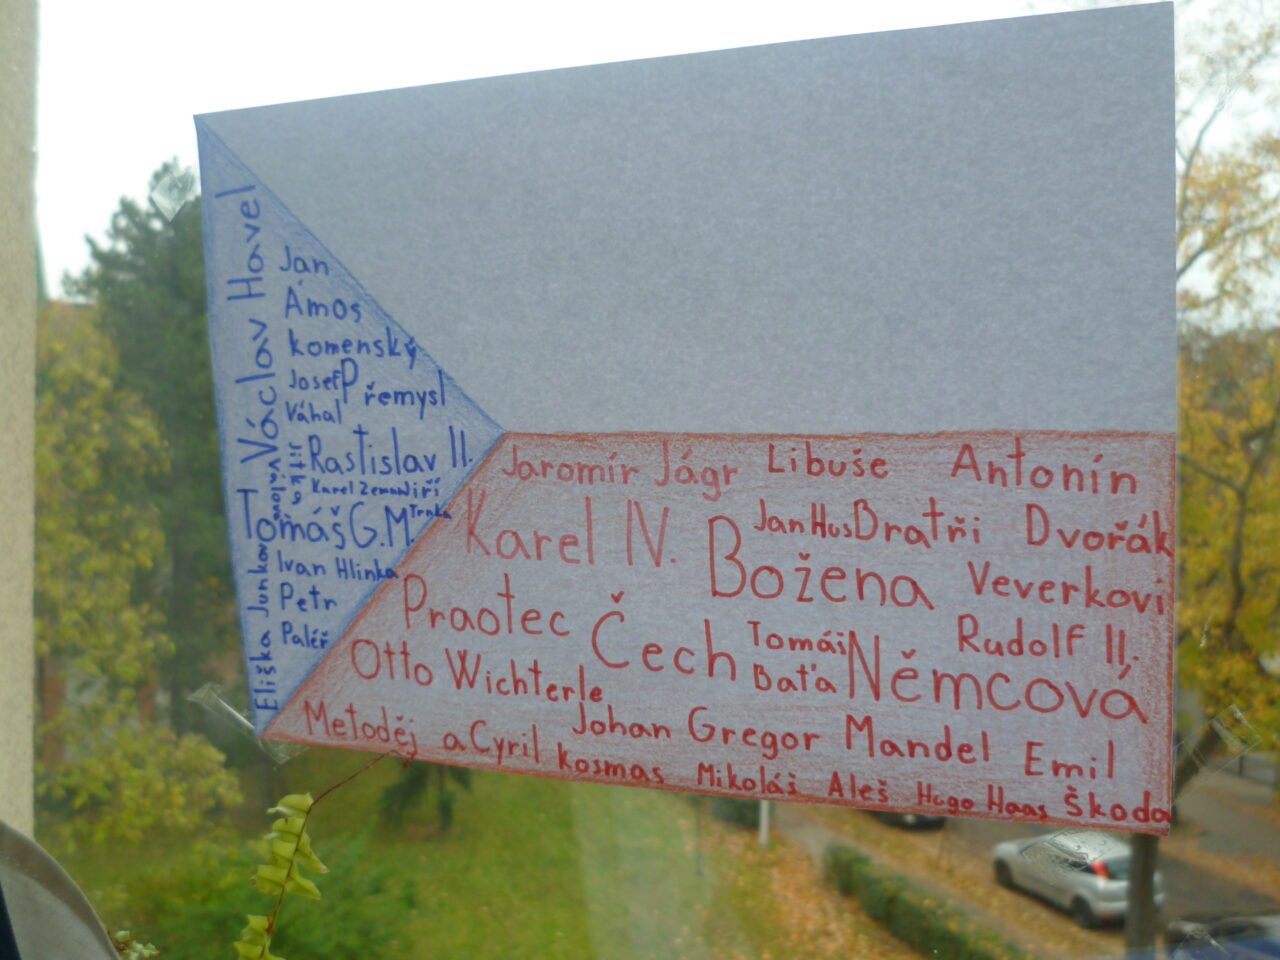 Václav Havel
Jan
Ámos
komenský
Josef Přemysl
Váhal
Rastislav II.
Karel Zeman Jiří
Trnka
Tomáš G. M.
Ivan Hlinka
Petr
Paléř
Eliška Junkov
Jaromír Jágr
Libuše
Antonín
Dvořák
Karel IV.
Jan Hus
Bratři
Veverkovi
Božena
Němcová
Praotec
Čech
Tomáš
Baťa
Rudolf II.
Otto Wichterle
Metoděj a Cyril
Johan Gregor Mandel
Emil
Škoda
kosmas
Mikoláš Aleš
Hugo Haas